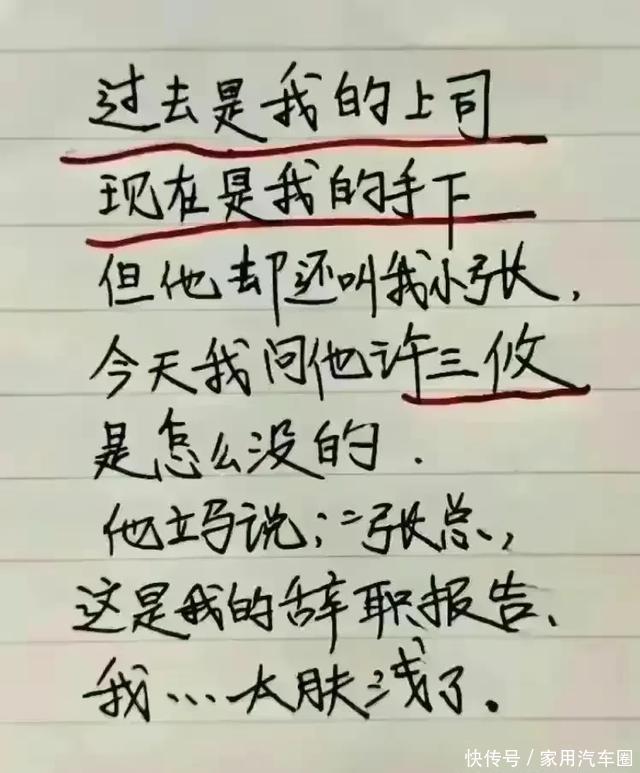 过去是我的上司
现在是我的手下
但他却还叫我小张，
今天我问他许三攸
是怎么没的．
他立马说；二张总、，
这是我的辞职报告、
我…太肤浅了。
快传号／家用汽车圈